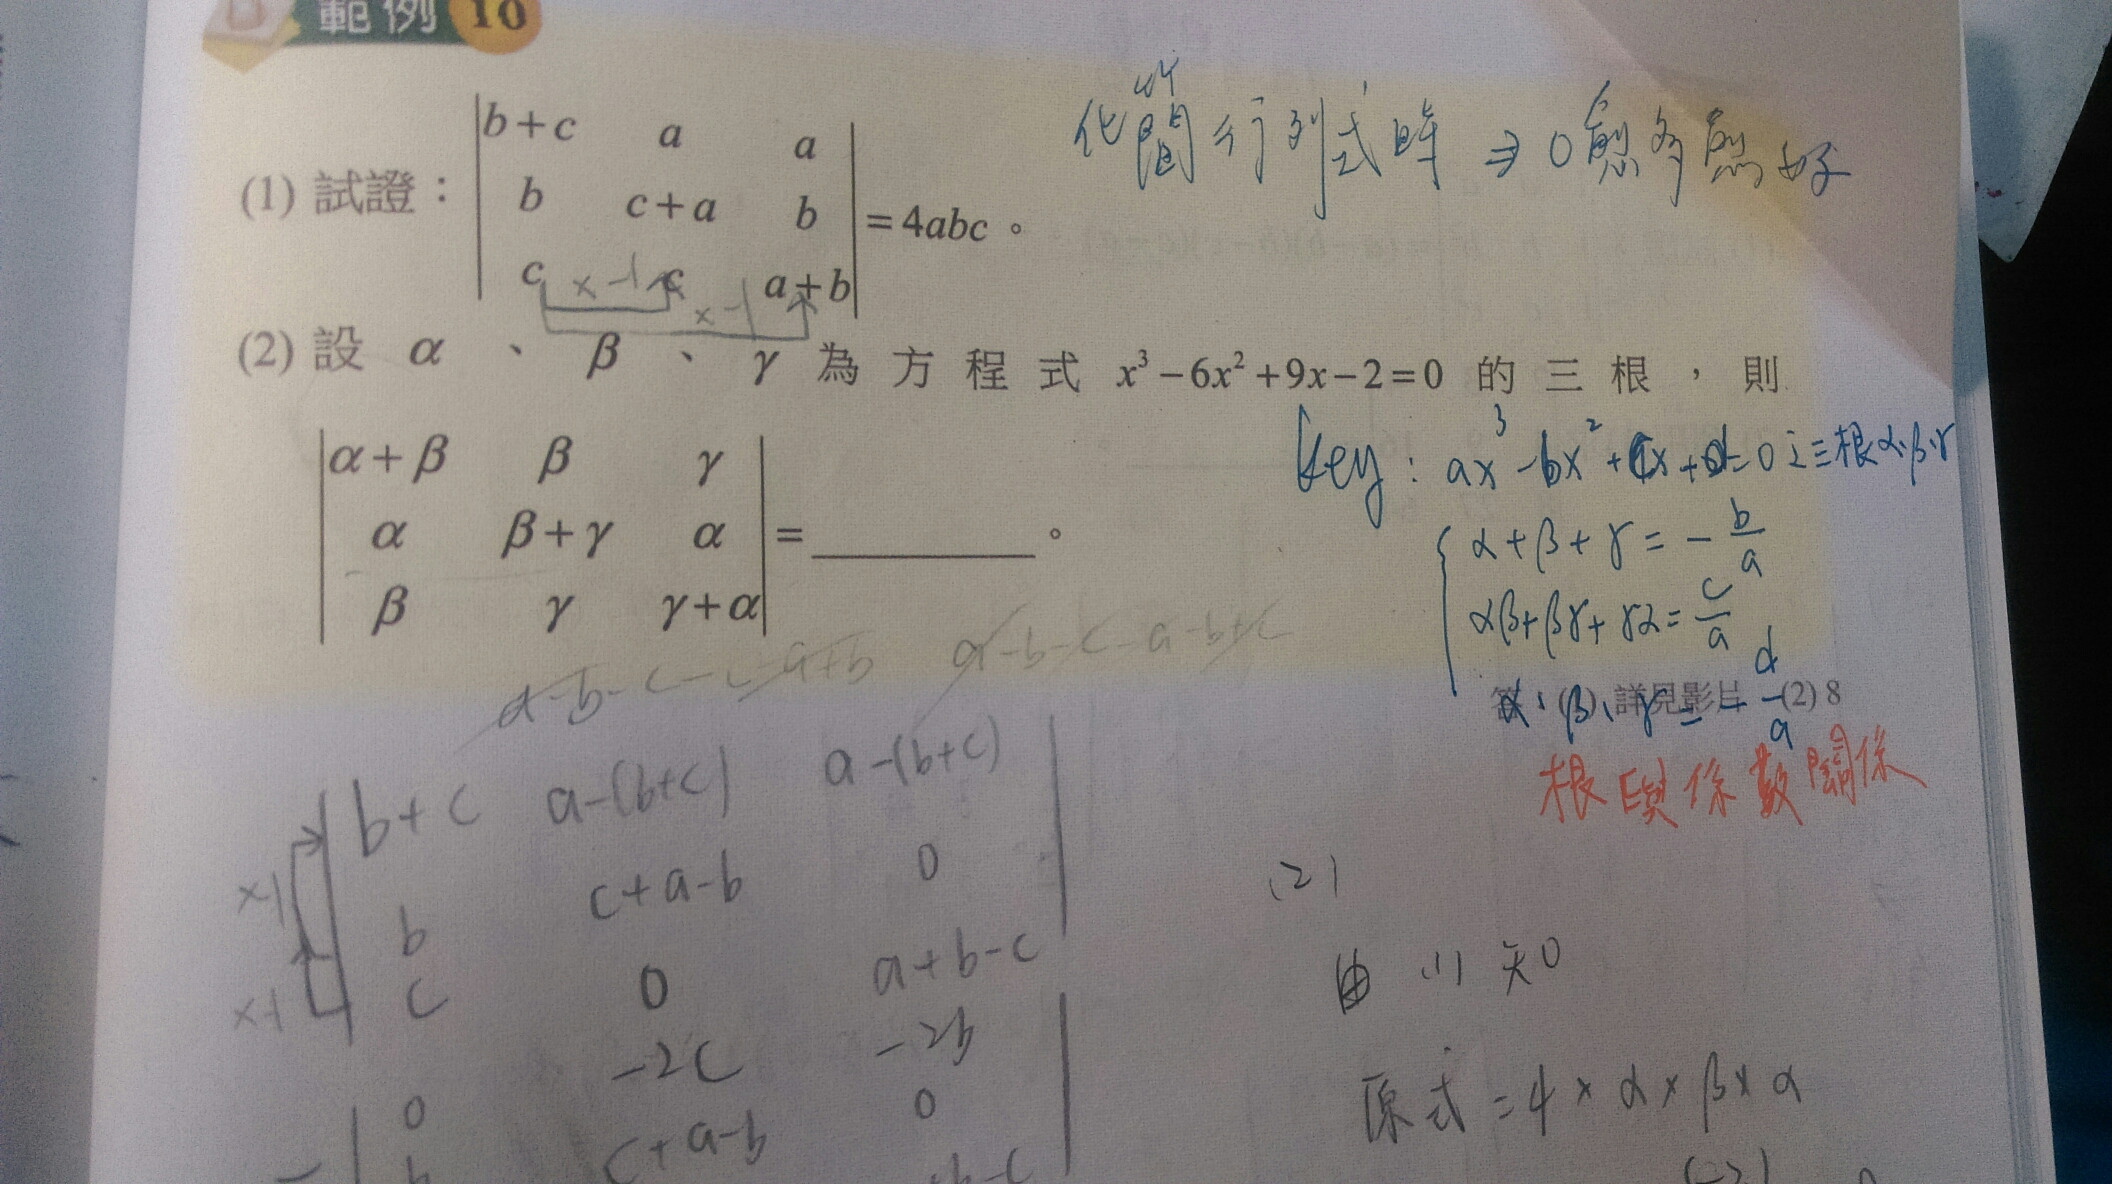 範例 10
化簡行列式時 ⇒ 0愈多愈好
(1) 試證：
b+c a a
b c+a b
c c a+b
= 4abc。
×-1
×-1
(2) 設 α 、 β 、 γ 為方程式 x³-6x²+9x-2=0 的三根，則
α+β β γ
α β+γ α
β γ γ+α
= ________。
key: ax³-bx²+cx+d=0 之三根α、β、γ
α+β+γ = -b/a
αβ+βγ+γα = c/a
α、β、γ = -d/a
(1) 詳見影片 (2) 8
根與係數關係
a-b-c-c-a+b a-b-c-a-b+c
b+c a-(b+c) a-(b+c)
b c+a-b 0
c 0 a+b-c
×1
×1
0 -2c -2b
c+a-b 0
(2)
由(1)知
原式=4×α×β×α
(-2)